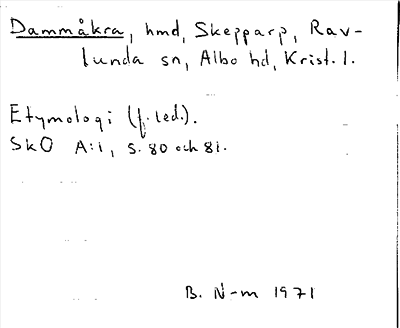 Dammåkra, hmd, Skepparp, Rav-
lunda sn, Albo hd, Krist. l.
Etymologi (f. led.).
SkO A:1, s. 80 och 81.
B. N-m 1971